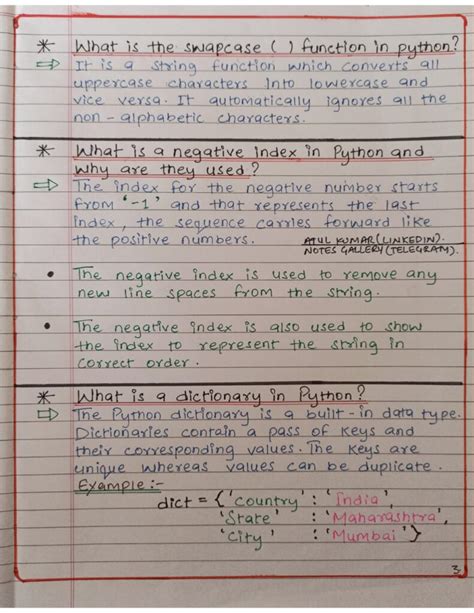 * What is the swapcase ( ) function in python?
⇒ It is a string function which converts all
uppercase characters Into lowercase and
vice versa. It automatically ignores all the
non - alphabetic characters.
* What is a negative index in Python and
why are they used ?
⇒ The index for the negative number starts
from '-1' and that represents the last
index , the sequence carries forward like
the positive numbers.
ATUL KUMAR (LINKEDIN).
NOTES GALLERY (TELEGRAM).
• The negative index is used to remove any
new line spaces from the string.
• The negative index is also used to show
the index to represent the string in
correct order .
* What is a dictionary in Python?
⇒ The Python dictionary is a built - in data type.
Dictionaries contain a pass of keys and
their corresponding values. The keys are
unique whereas values can be duplicate .
Example :-
dict = { 'country' : 'India',
'State' : 'Maharashtra',
'city' : 'Mumbai' }
3